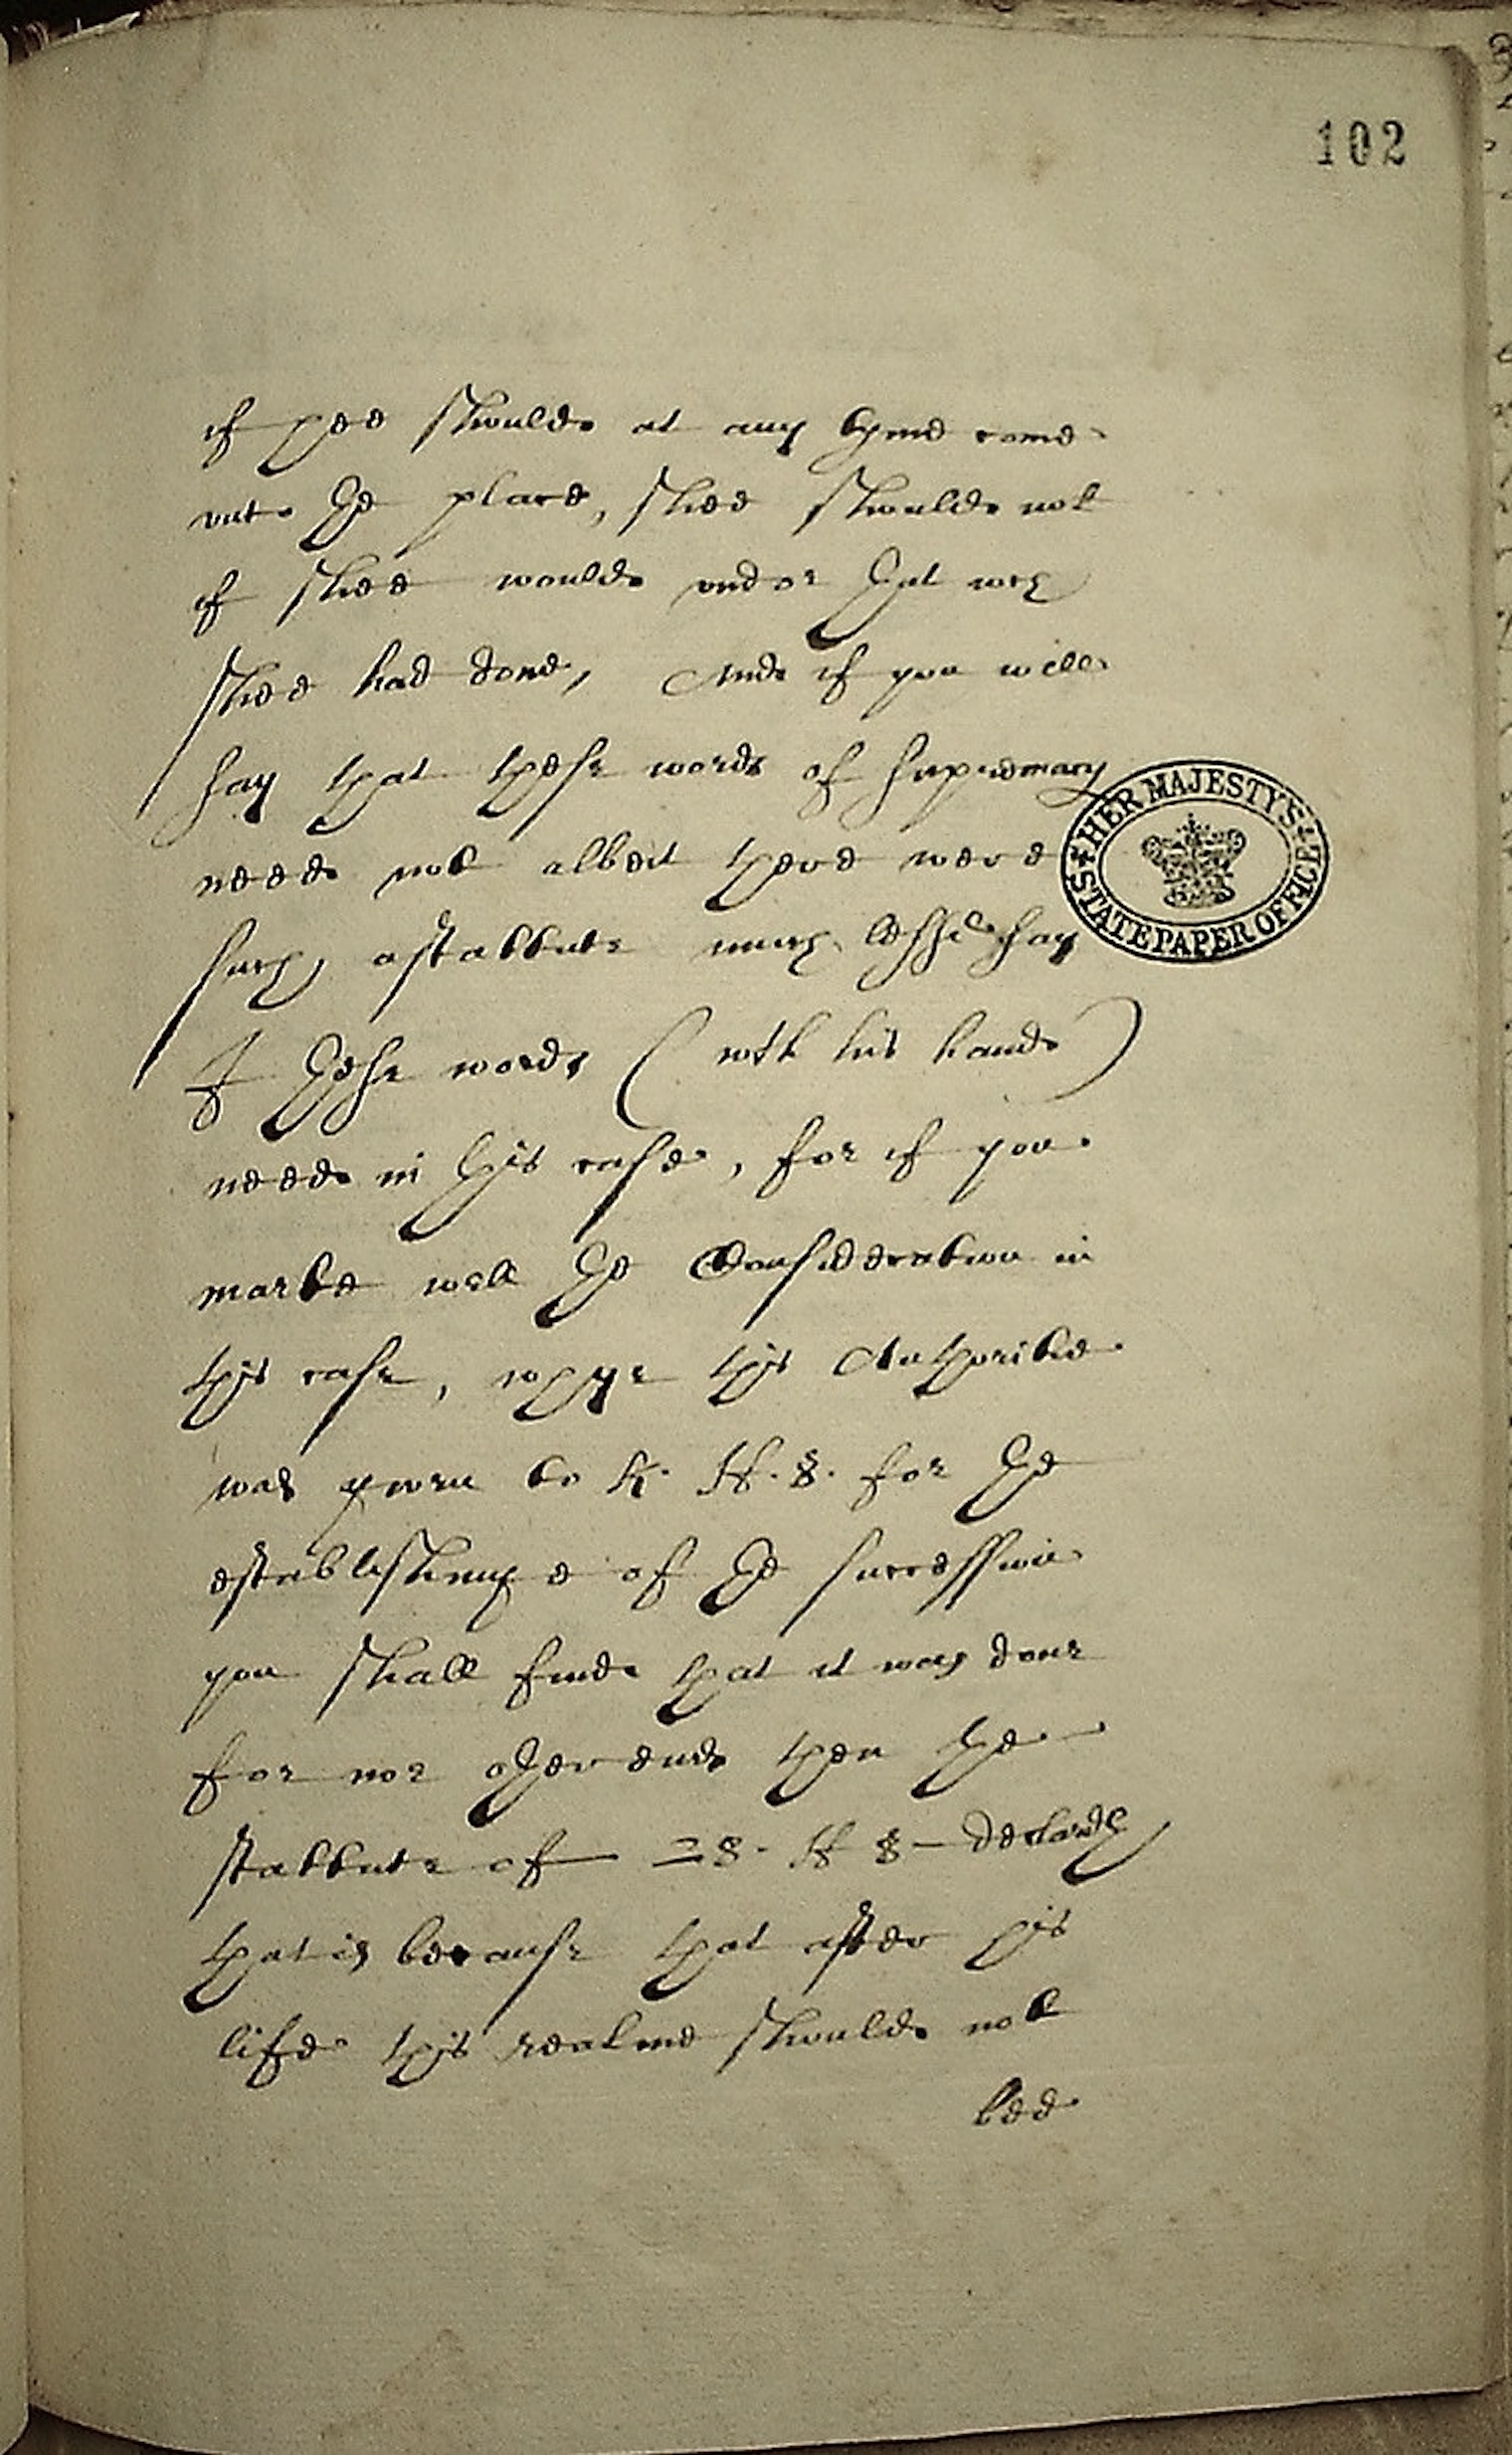 102
if hee shoulde at any tyme come
vnto the place, shee shoulde not
if shee woulde vndoe that wch
shee had done, And if you will
say that these words of supremacy
neede not albeit there were
such a stattute much lesse say
I these words (wth his hande)
neede in this case, for if you
marke well the Consideration in
this case, whye this Authoritie
was gyven to K. H. 8. for the
establishinge of the succession
you shall finde that it was done
for noe other ende then the
stattute of 28. H 8 declareth
that is because that after his
life this realme shoulde not
bee
HER MAJESTY'S
STATE PAPER OFFICE